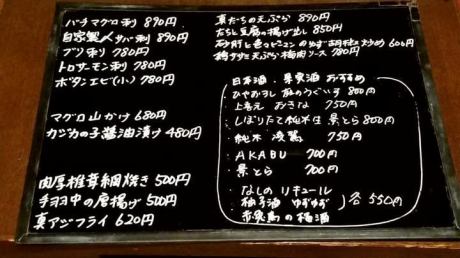 バチマグロ刺 890円
自家製〆サバ刺 890円
ブリ刺 780円
トロサーモン刺 780円
ボタンエビ(小) 780円
マグロ山かけ 680円
カジカの子醤油漬け 480円
肉厚椎茸網焼き 500円
手羽中の唐揚げ 500円
真アジフライ 620円
真だちの天ぷら 890円
たちと豆腐の揚げ出し 850円
砂肝と色々ピーマンのゆず胡椒炒め 600円
鶏ササミ天ぷら梅肉ソース 780円
日本酒、果実酒おすすめ
・ひやおろし 庭のうぐいす 800円
・上喜元 750円
・しぼりたて純米生 景とら 800円
・純米 750円
・AKABU 700円
・景とら 700円
・なしのリキュール
・柚子酒 ゆずゆず
・赤鷲馬の梅酒
各 550円